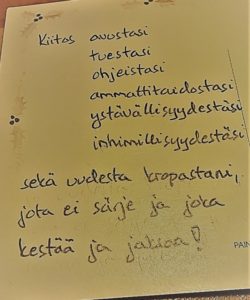 Kiitos avustasi
tuestasi
ohjeistasi
ammattitaidostasi
ystävällisyydestäsi
inhimillisyydestäsi
sekä uudesta kropastani,
jota ei särje ja joka
kestää ja jaksaa!
PAIN